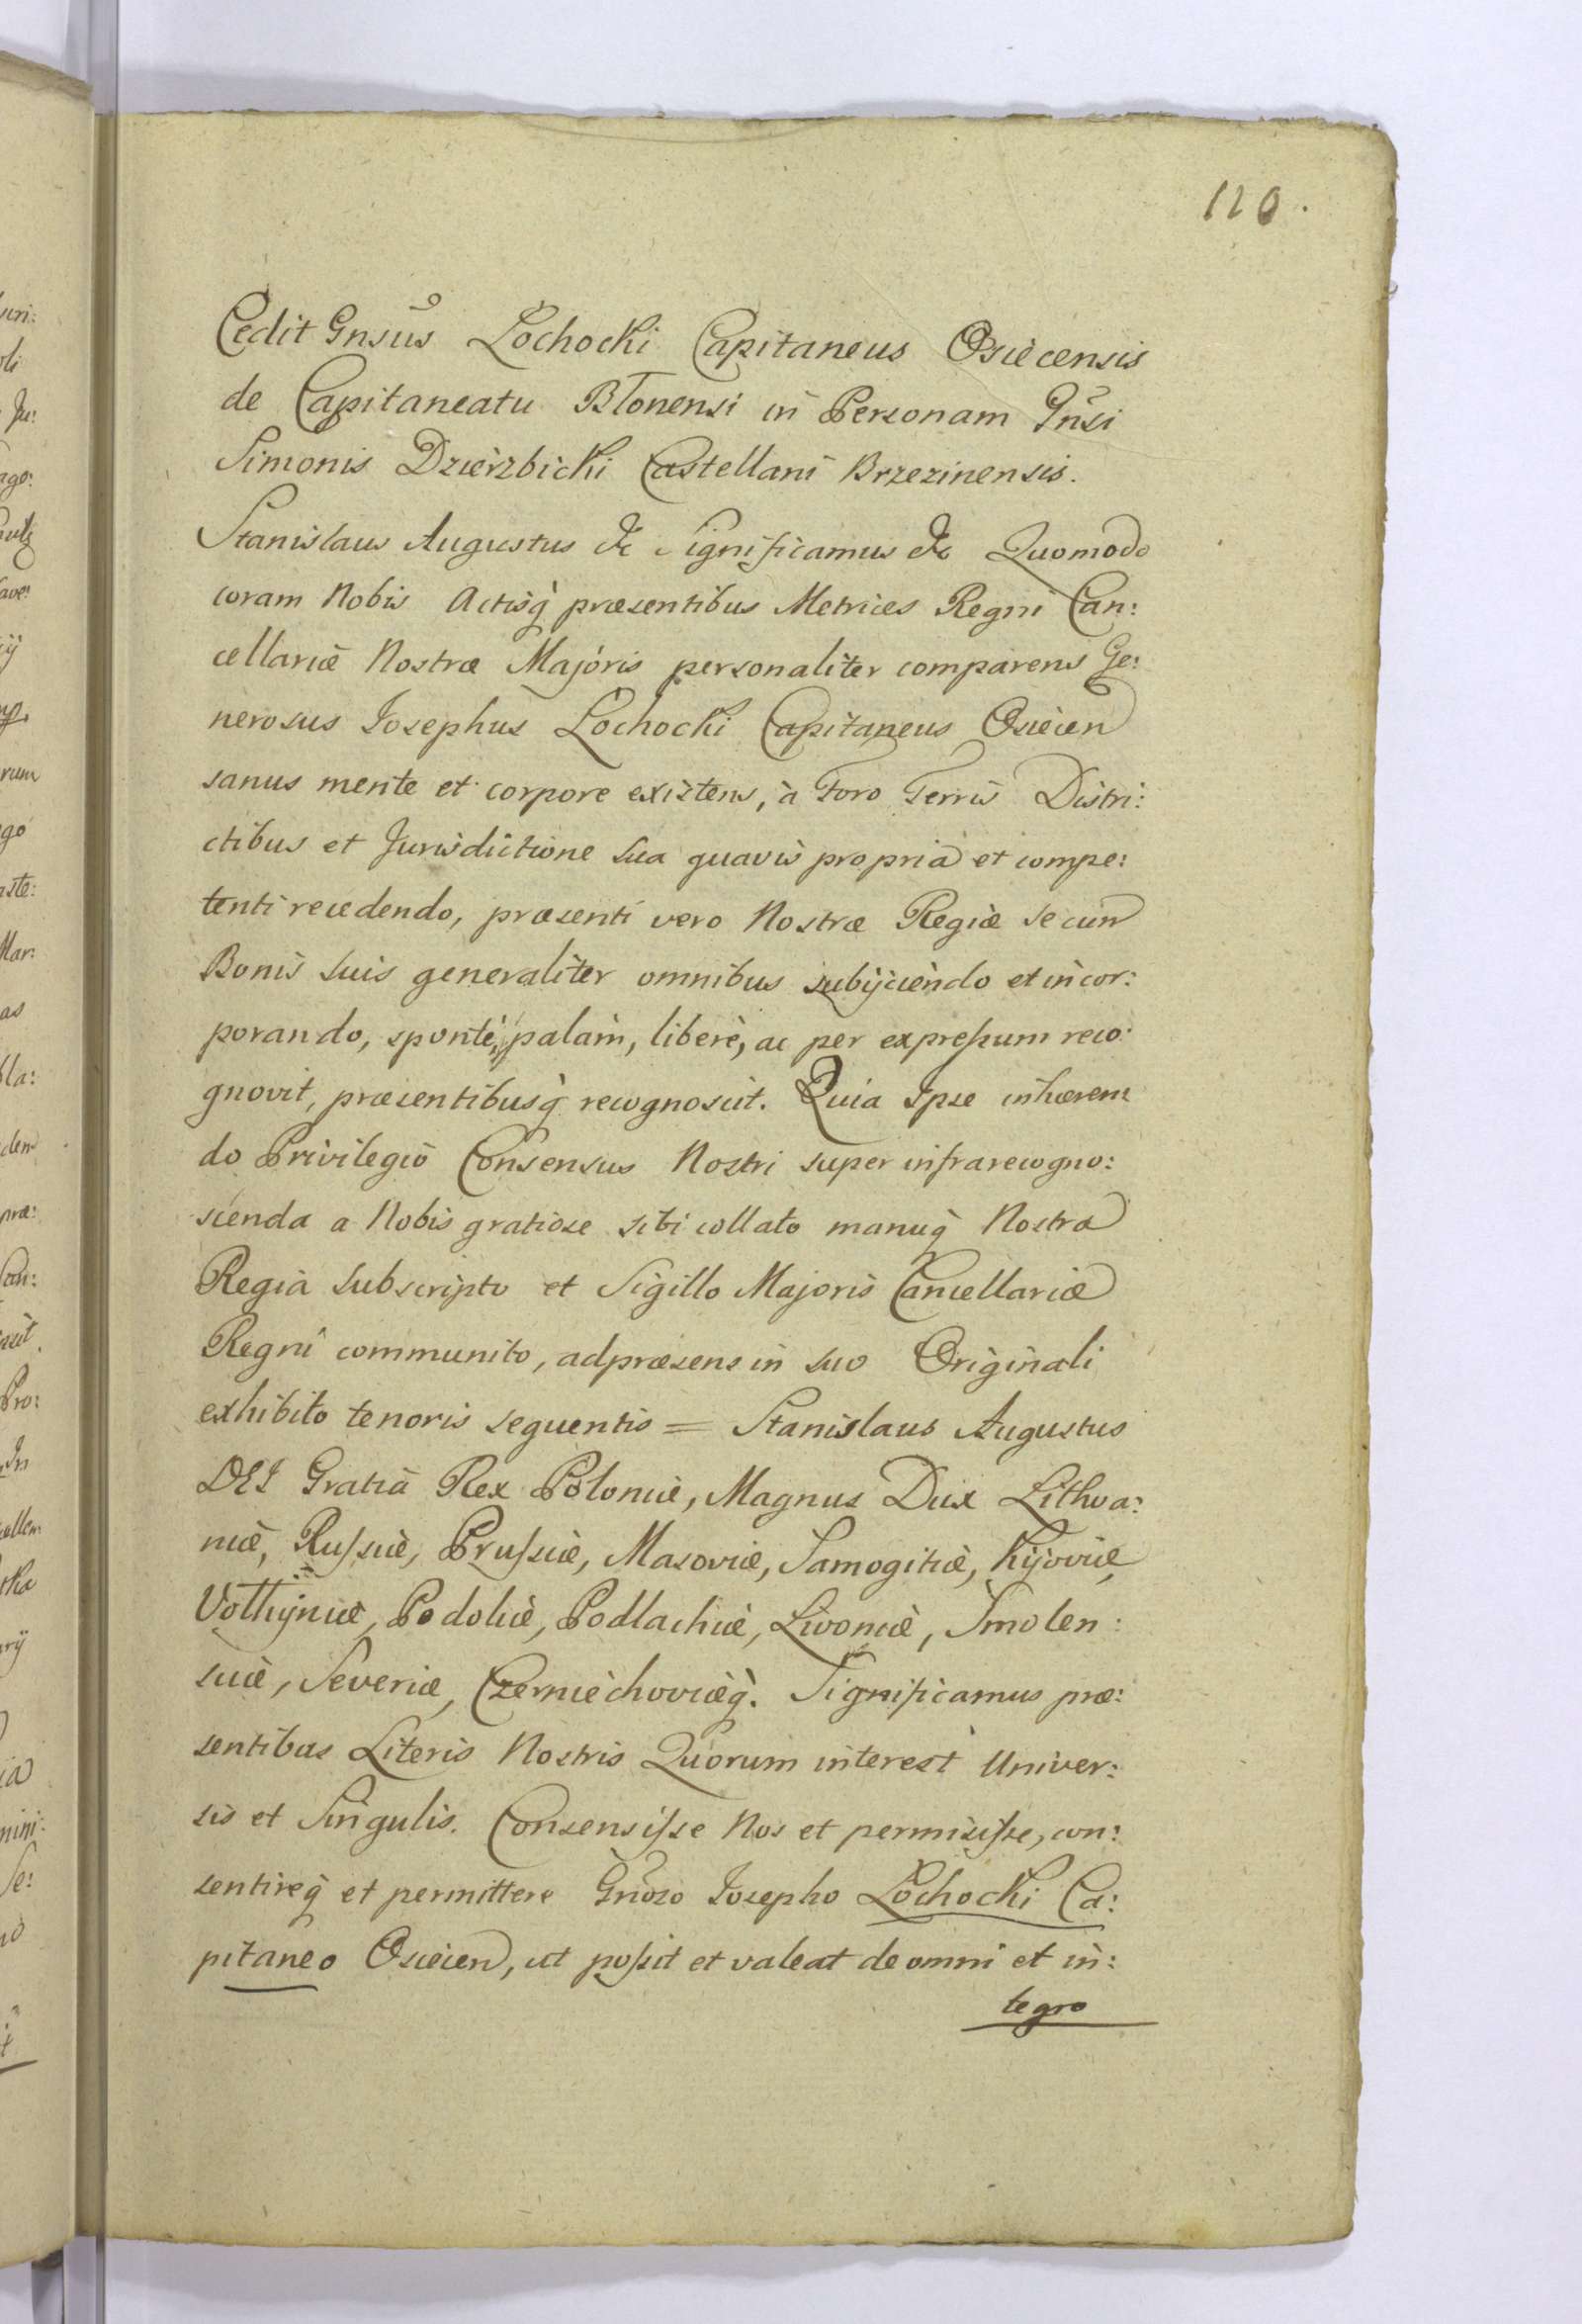 120.
Cedit Gnsus Łochocki Capitaneus Osiecensis
de Capitaneatu Błonensi in Personam Gnsi
Simonis Dzierzbicki Castellani Brzezinensis.
Stanislaus Augustus &c Significamus &c Quomodo
coram Nobis Actisq̀ præsentibus Metrices Regni Can:
cellariæ Nostræ Majoris personaliter comparens Ge:
nerosus Josephus Łochocki Capitaneus Osiecen
sanus mente et corpore existens, à Foro Terris Distri:
ctibus et Jurisdictione sua quavis propria et compe:
tenti recedendo, præsenti vero Nostræ Regiæ se cum
Bonis suis generaliter omnibus subijciendo et incor:
porando, sponte, palam, libere, ac per expreſsum reco:
gnovit, præsentibusq̀ recognoscit. Quia Ipse inhæren
do Privilegio Consensus Nostri super infrarecogno:
scenda a Nobis gratiose sibi collato manuq̀ Nostra
Regia subscripto et Sigillo Majoris Cancellariæ
Regni communito, ad præsens in suo Originali
exhibito tenoris sequentis = Stanislaus Augustus
DEI Gratiâ Rex Poloniæ, Magnus Dux Lithva:
niæ, Ruſsiæ, Pruſsiæ, Masoviæ, Samogitiæ, Kijoviæ,
Volhÿniæ, Podoliæ, Podlachiæ, Livoniæ, Smolen:
sciæ, Severiæ, Czerniechoviæq̀. Significamus præ:
sentibus Literis Nostris Quorum interest Univer:
sis et Singulis. Consensiſse Nos et permisiſse, con:
sentireq̀ et permittere Gnoso Josepho Łochocki Ca:
pitaneo Osiecen, ut poſsit et valeat de omni et in:
tegro